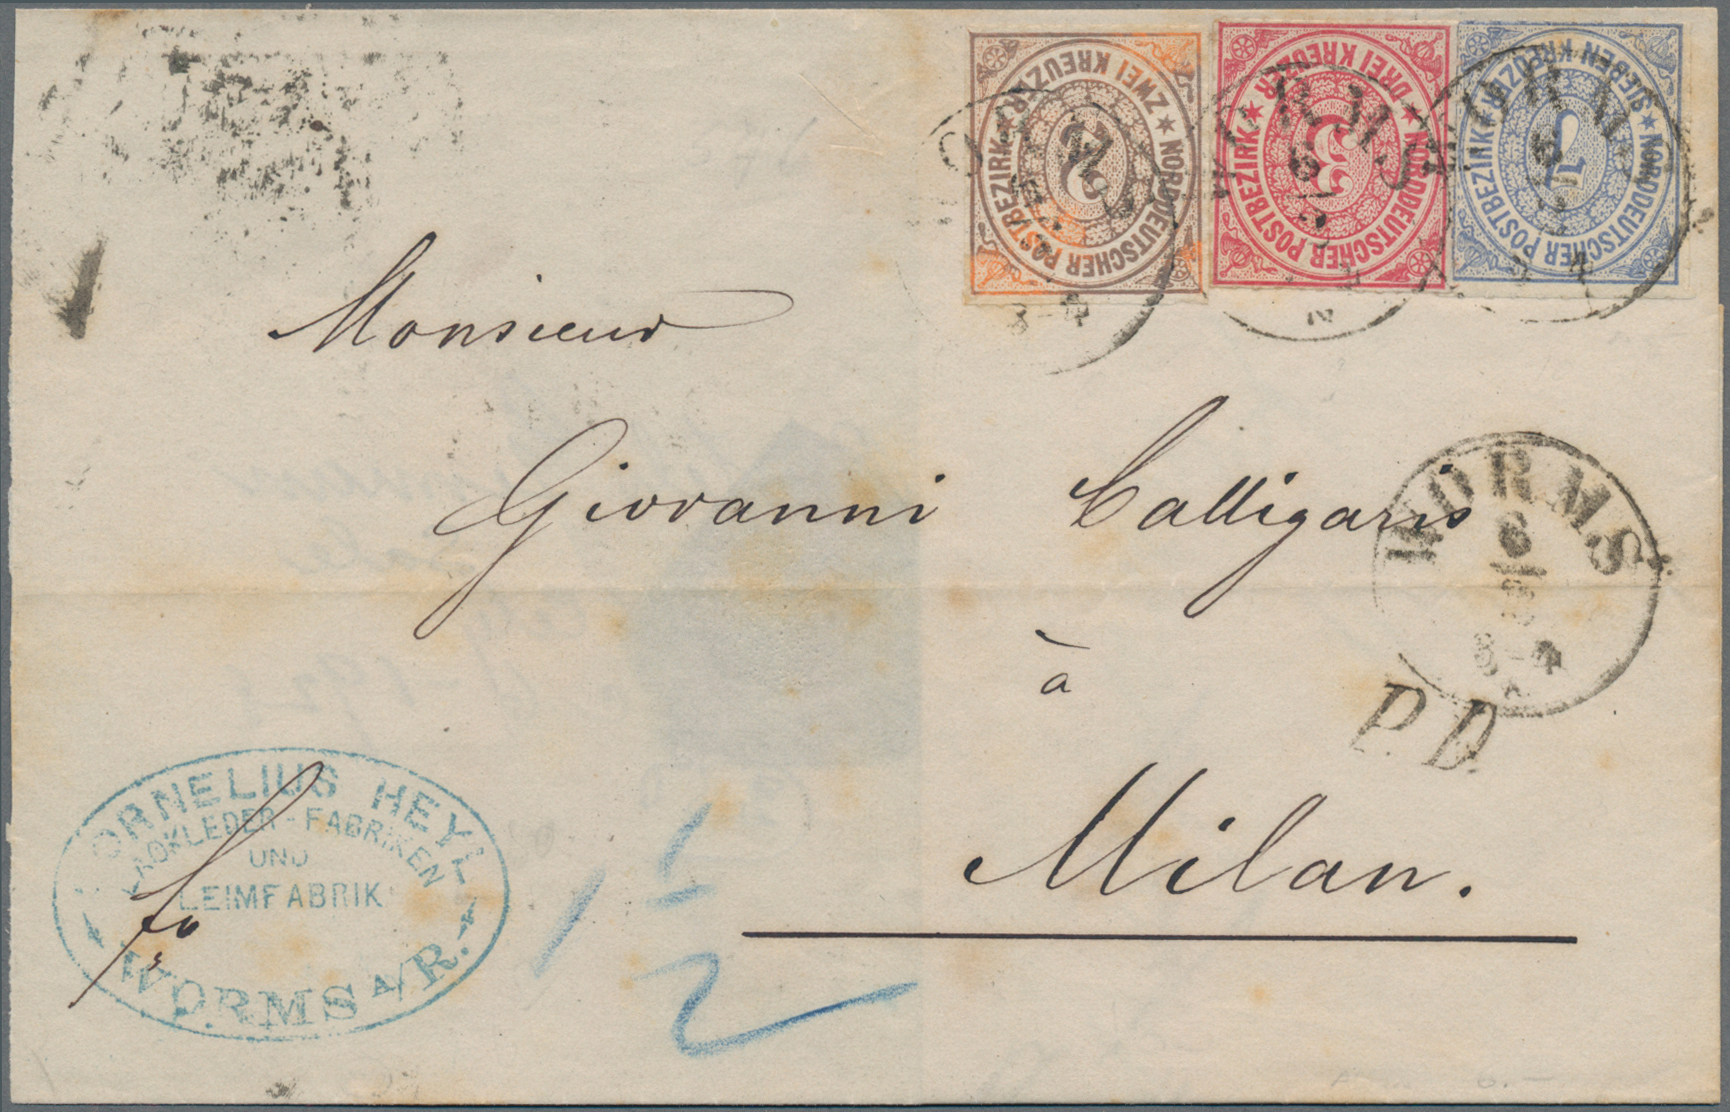 NORDDEUTSCHER POSTBEZIRK * ZWEI KREUZER *
2
NORDDEUTSCHER POSTBEZIRK * DREI KREUZER *
3
NORDDEUTSCHER POSTBEZIRK * SIEBEN KREUZER *
7
WORMS
6
WORMS
6
Monsieur
Giovanni Calligaris
à
Milan.
WORMS
6
P.D.
CORNELIUS HEYL
LACKLEDER-FABRIKEN
UND
LEIMFABRIK
WORMS A/R.
fo
1 1/2